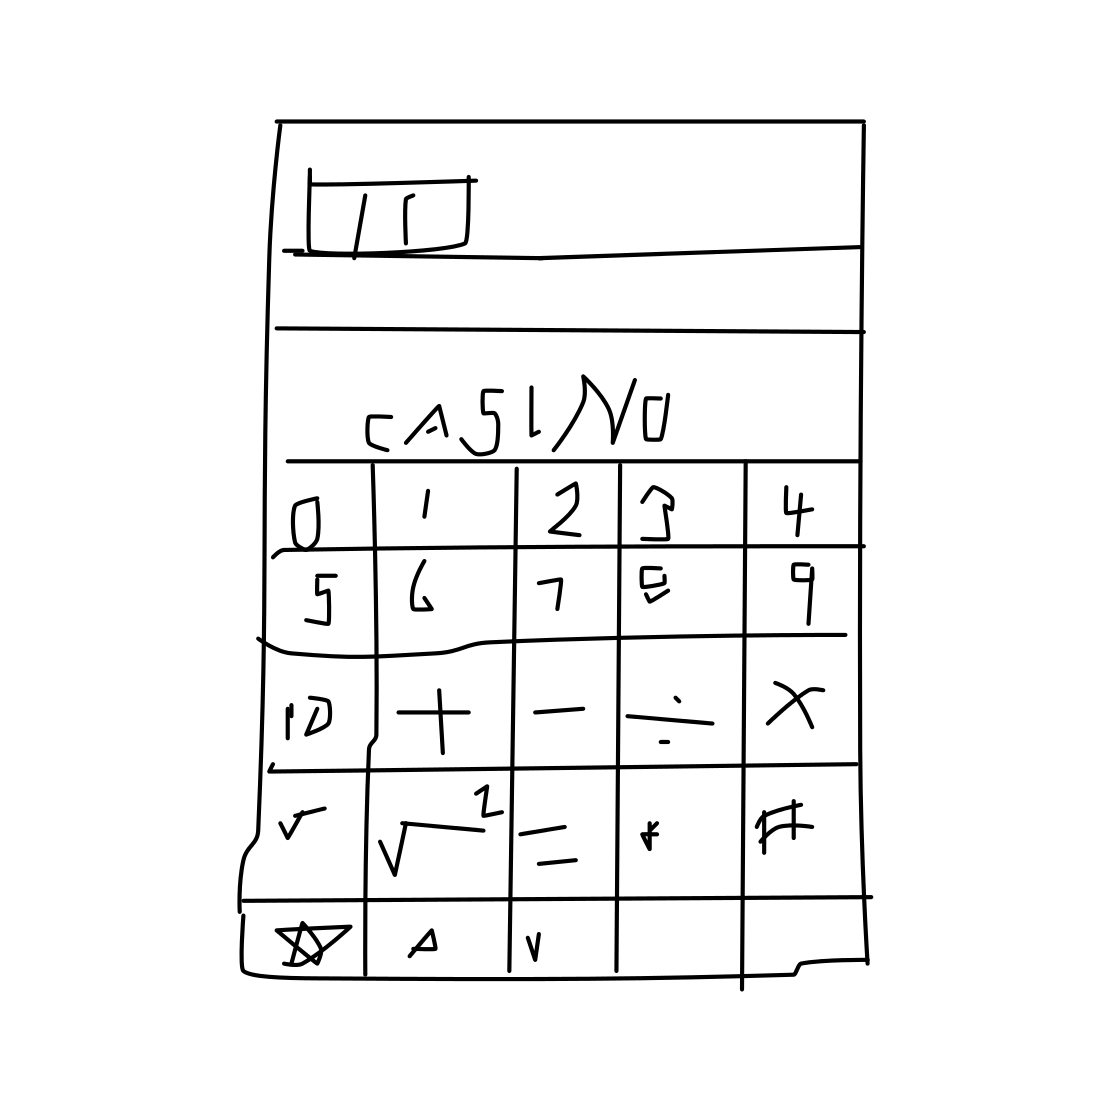 CASINO
0 1 2 3 4
5 6 7 8 9
10 + − ÷ ×
√ √² = * #
☆ A V